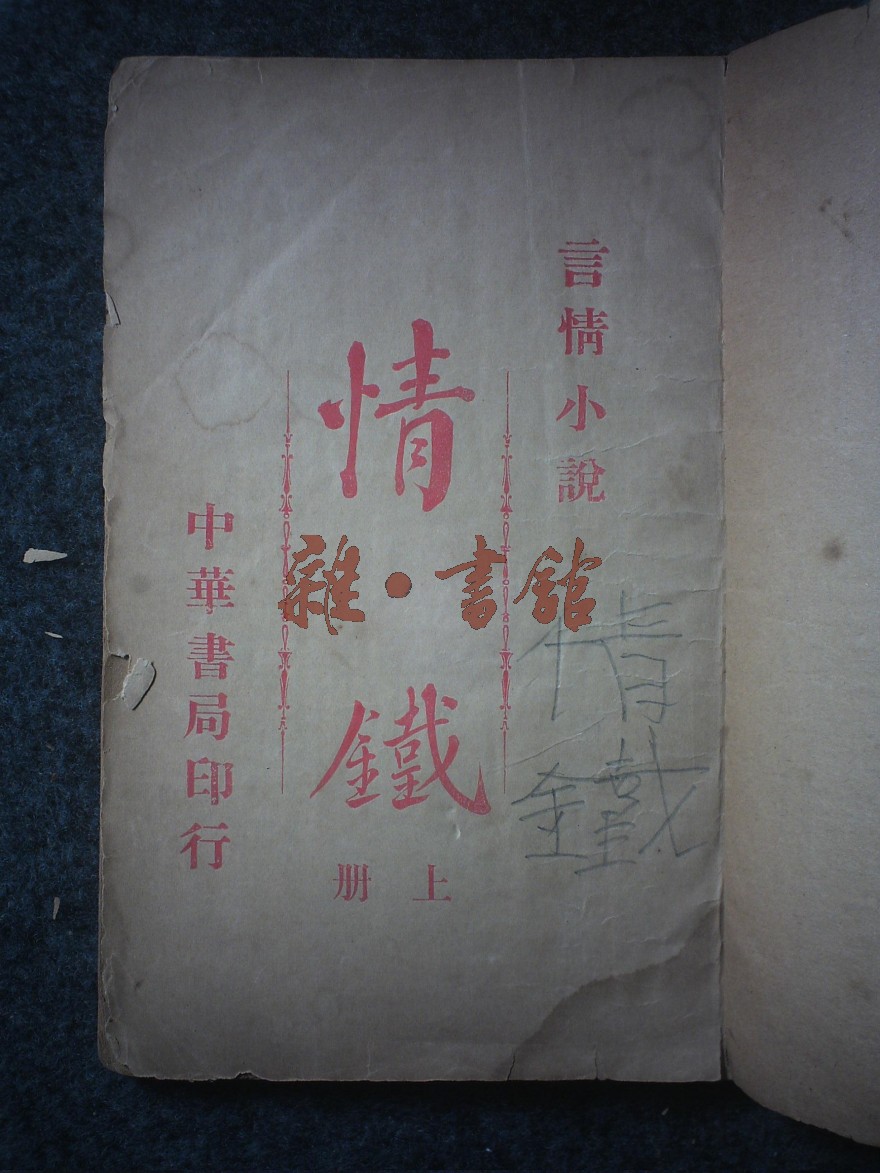 言情小說
情鐵
上册
中華書局印行
雜·書館
情鐵